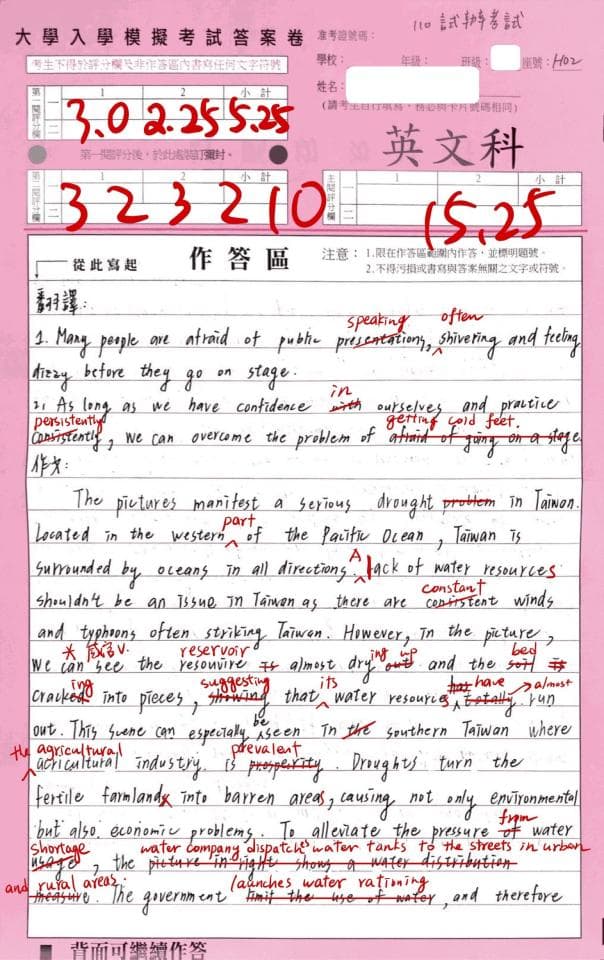 110 試辦考試
大學入學模擬考試答案卷
准考證號碼:
考生不得於評分欄及非作答區內書寫任何文字符號
學校: 年級: 班級: 座號: H02
姓名:
(請考生自行填寫,務必與卡片號碼相同)
第一閱評分欄 一 二 1 2 小計
3.0 2.25 5.25
第一閱評分後,於此處裝訂彌封。
英文科
第二閱評分欄 一 二 1 2 小計
3 2 3 2 10
主閱評分欄 一 二 1 2 小計
15.25
從此寫起
作答區
注意: 1.限在作答區範圍內作答,並標明題號。
2.不得污損或書寫與答案無關之文字或符號。
翻譯:
speaking often
1. Many people are afraid of public presentations, shivering and feeling
dizzy before they go on stage.
in
2. As long as we have confidence with ourselves and practice
persistently getting cold feet.
consistently, we can overcome the problem of afraid of going on a stage.
作文:
The pictures manifest a serious drought problem in Taiwan.
part
Located in the western of the Pacific Ocean, Taiwan is
A
surrounded by oceans in all directions. lack of water resources
constant
shouldn't be an issue in Taiwan as there are consistent winds
and typhoons often striking Taiwan. However, in the picture,
感官V. reservoir ing up bed
we can see the resouvire is almost dry out and the soil is
ing suggesting its has have almost
cracked into pieces, showing that water resources totally run
be
out. This scene can especially seen in the southern Taiwan where
the agricultural prevalent
acricultural industry is prosperity. Droughts turn the
fertile farmland into barren areas, causing not only environmental
from
but also economic problems. To alleviate the pressure of water
shortage water company dispatches water tanks to the streets in urban
usage, the picture in right shows a water distribution
and rural areas. launches water rationing
measure. The government limit the use of water, and therefore
背面可繼續作答